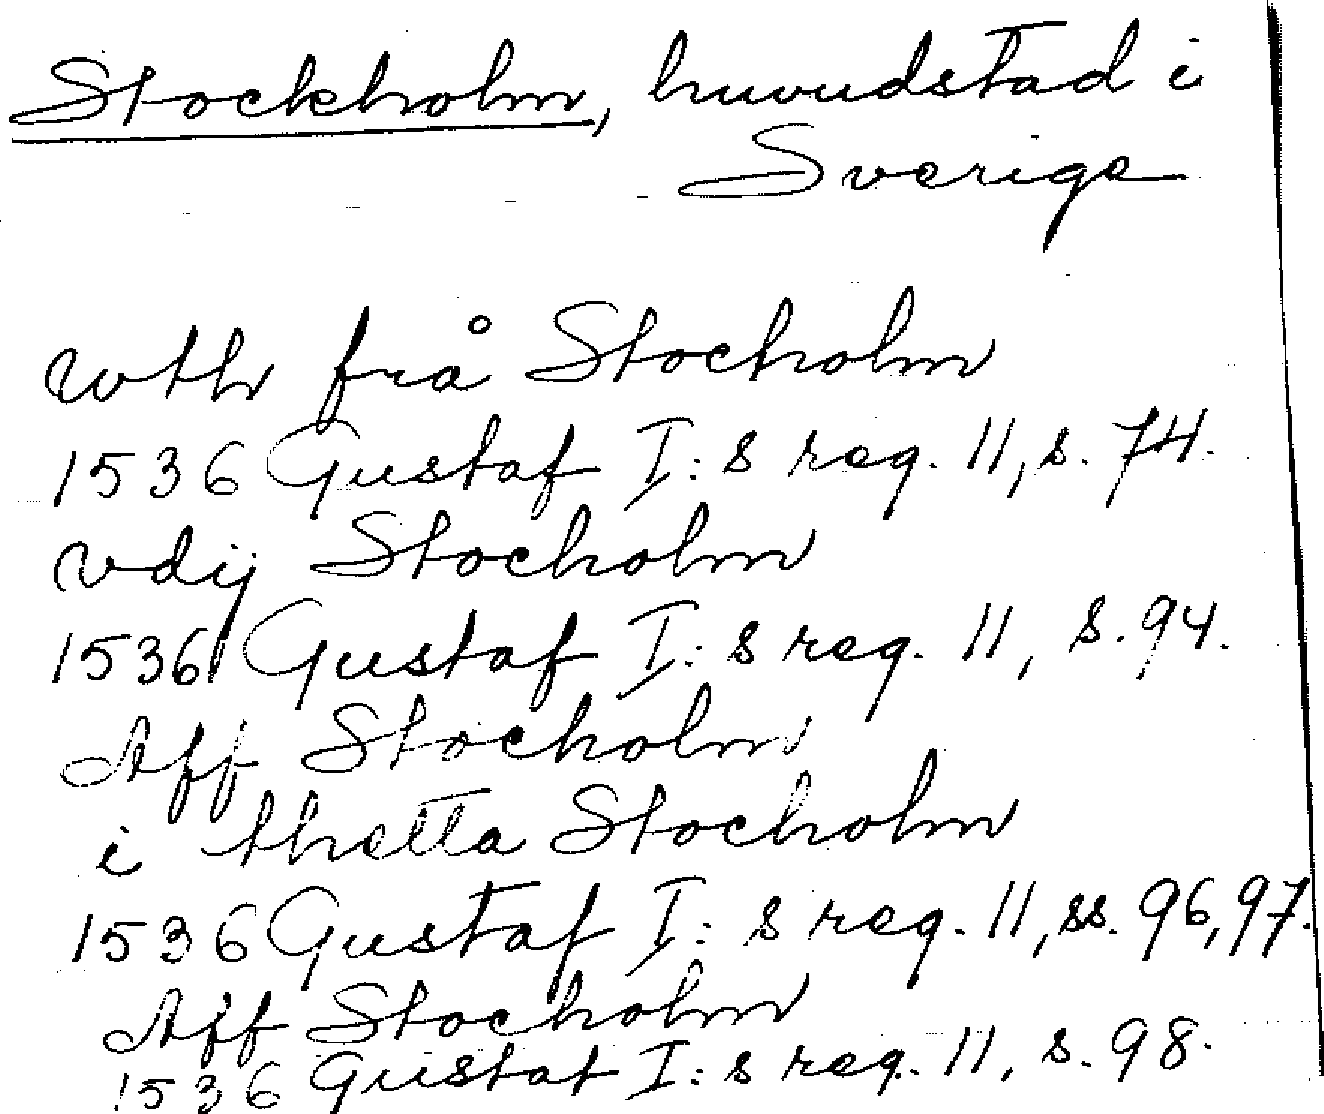 Stockholm, huvudstad i
Sverige
wthr frå Stocholm
1536 Gustaf I:s reg. 11, s. 74.
vdij Stocholm
1536 Gustaf I:s reg. 11, s. 94.
Aff Stocholm
i thetta Stocholm
1536 Gustaf I:s reg. 11, ss. 96, 97.
Aff Stocholm
1536 Gustaf I:s reg. 11, s. 98.